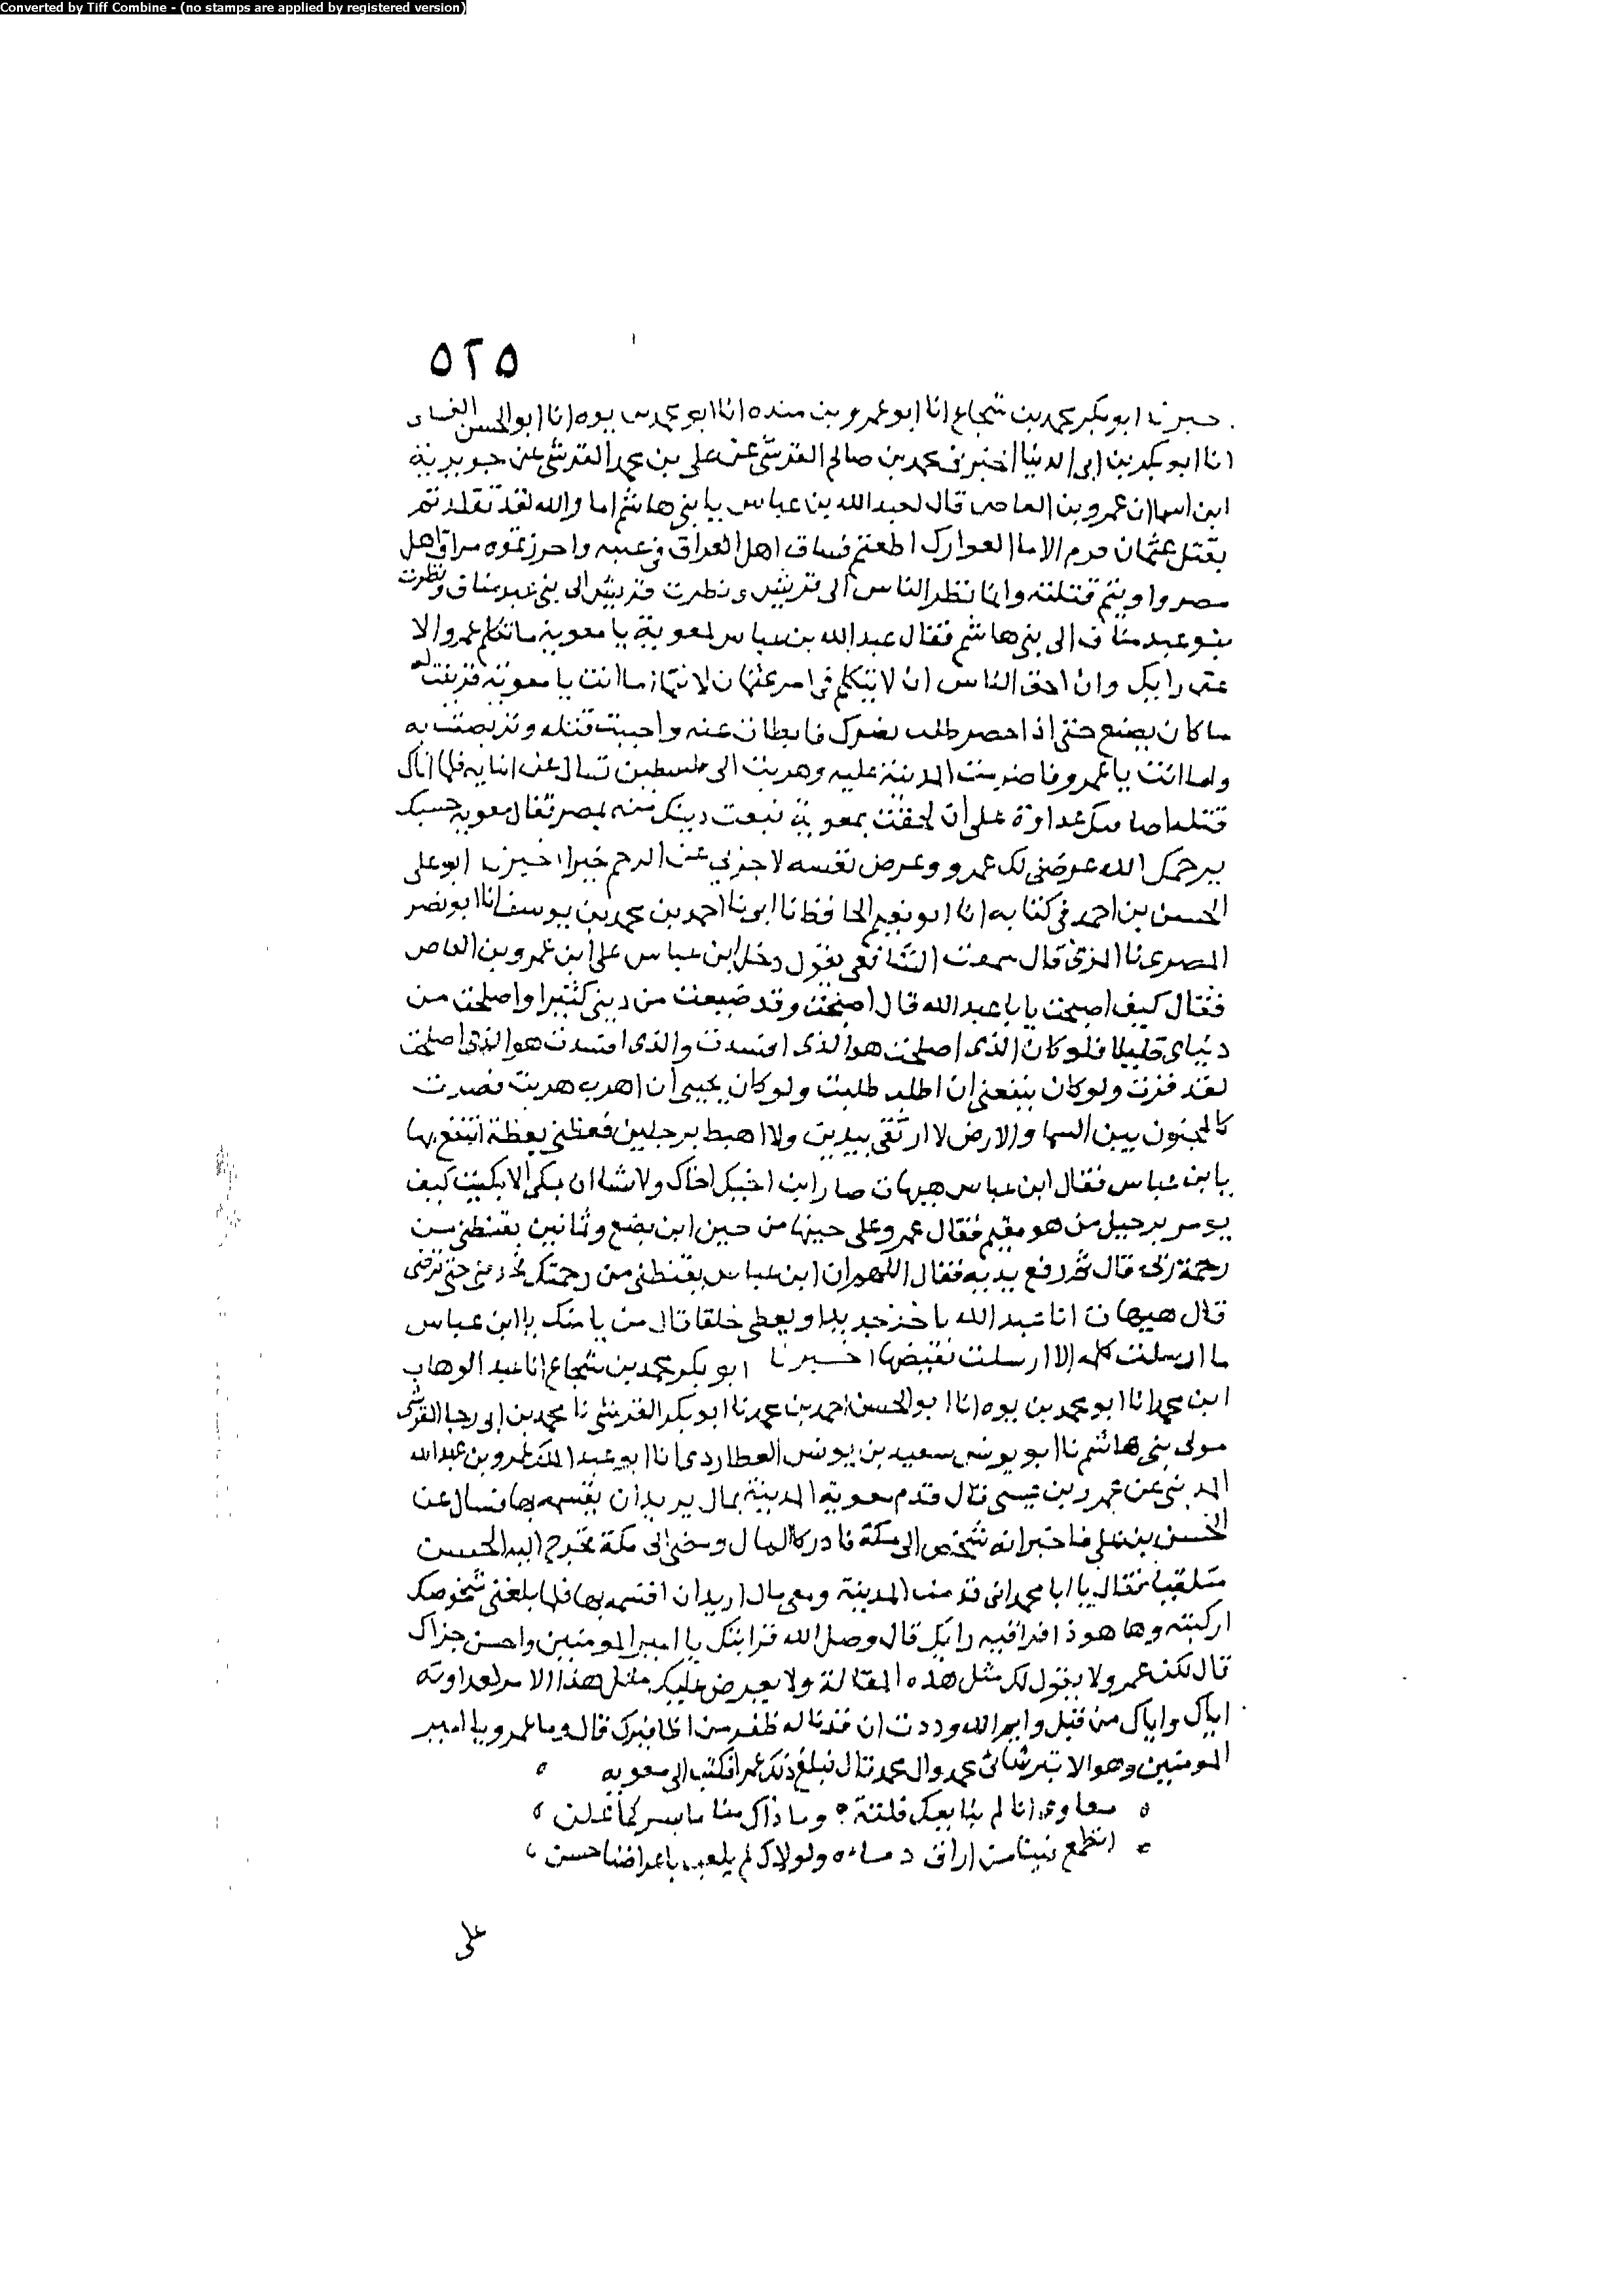 Converted by Tiff Combine - (no stamps are applied by registered version)
٥٢٥
خبرنا ابو بكر محمد بن شجاع انا ابو عمرو بن منده انا ابو محمد بن يوه انا ابو الحسن
انا ابو بكر بن ابى الدنيا اخبرنى محمد بن صالح القرشى عن على بن محمد القرشى عن جويرية
ابن اسما ان عمرو بن العاص قال لعبد الله بن عباس يا بنى هاشم اما والله لقد تقلدتم
بقتل عثمان فرم الاما العوارك اطعتم فساق اهل العراق فى عيبه واحرزتموه مراق اهل
مصر واويتم قتلته وانما نظر الناس الى قريش ونظرت قريش الى بنى عبد مناف ونظرت
بنو عبد مناف الى بنى هاشم فقال عبد الله بن عباس لمعوية يا معوية ما تكلم عمرو الا
عن رايك وان احق الناس ان لا يتكلم فى امر عثمان لانتما اما انت يا معوية فزينت له
ما كان يصنع حتى اذا حصر طلب نصرك فابطات عنه واحببت قتله وتربصت به
واما انت يا عمرو فاضرمت المدينة عليه وهربت الى فلسطين تسال عن انبايه فلما اتاك
قتله اضافتك عداوة على ان لحقت بمعوية فبعت دينك منه بمصر فقال معوية حسبك
يرحمك الله عرضنى لك عمرو وعرض نفسه لا جزى عن الرحم خيرا اخبرنا ابو على
الحسن بن احمد فى كتابه انا ابو نعيم الحافظ نا ابونا احمد بن محمد بن يوسف انا ابو نصر
المصرى نا المزنى قال سمعت الشافعى يقول دخل ابن عباس على ابن عمرو بن العاص
فقال كيف اصبحت يا با عبد الله قال اصبحت وقد ضيعت من دينى كثيرا واصلحت من
دنياى قليلا فلو كان الذى اصلحت هو الذى افسدت والذى افسدت هو الذى اصلحت
لقد فزت ولو كان ينفعنى ان اطلب طلبت ولو كان ينجينى ان اهرب هربت فصرت
كالمجنون بين السما والارض لا ارتقى بيدين ولا اهبط برجلين فعظنى بعظة انتفع بها
يا بن عباس فقال ابن عباس هيهات صار ابن اخيك اخاك ولا تشا ان تبكى الا بكيت كيف
يومر برحيل من هو مقيم فقال عمرو على حينها من حين ابن بضع وثمانين تقنطنى من
رحمة ربى قال ثم رفع يديه فقال اللهم ان ابن عباس يقنطنى من رحمتك فخذ منى حتى ترضى
قال هيهات ابا عبد الله تاخذ جديدا وتعطى خلقا قال من يامنك يا ابن عباس
ما ارسلت كلمه الا ارسلت نقيضها اخبرنا ابو بكر محمد بن شجاع انا عبد الوهاب
ابن محمد انا ابو محمد بن يوه انا ابو الحسن احمد بن محمد نا ابو بكر القرشى نا محمد بن ابى رجا القرشى
مولى بنى هاشم نا ابو يونس سعيد بن يونس العطاردى انا ابو عبد الملك عمرو بن عبد الله
المدينى عن عمر بن عيسى قال قدم معوية المدينة بمال يريد ان يقسمه بها فسال عن
الحسن بن على فاخبر انه شخص الى مكة فادرك المال ومضى الى مكة فخرج اليه الحسن
متلقيا فقال يا ابا محمد انى قدمت المدينة ومعى مال اريد ان اقسمه بها فلما بلغنى شخوصك
اركبته وها هوذا فرا فيه رايك قال وصل الله قرابتك يا امير المومنين واحسن جزاك
قال لكن عمرو لا يقول لك مثل هذه المقالة ولا يعرض عليك مثل هذا الامر لعداوته
اياك واياك من قبل وايم الله وددت ان قد ناله ظفر من اظافيرك قال وما عمرو يا امير
المومنين وهو الابتر شانى محمد وال محمد قال فبلغ ذلك عمرا فكتب الى معويه
معاوى انا لم نبايعك فلتة وما ذاك منا ما يسر كما علن
اتطمع فينا من اراق دماءه ولولاك لم يلعب باعراضنا حسن
على